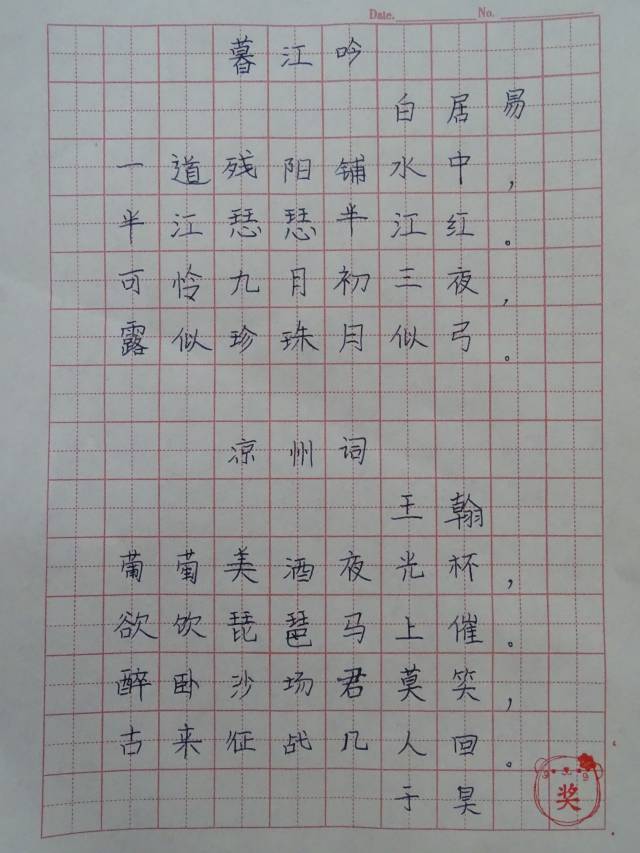 Date. No.
暮江吟
白居易
一道残阳铺水中，
半江瑟瑟半江红。
可怜九月初三夜，
露似珍珠月似弓。
凉州词
王翰
葡萄美酒夜光杯，
欲饮琵琶马上催。
醉卧沙场君莫笑，
古来征战几人回。
于昊
奖